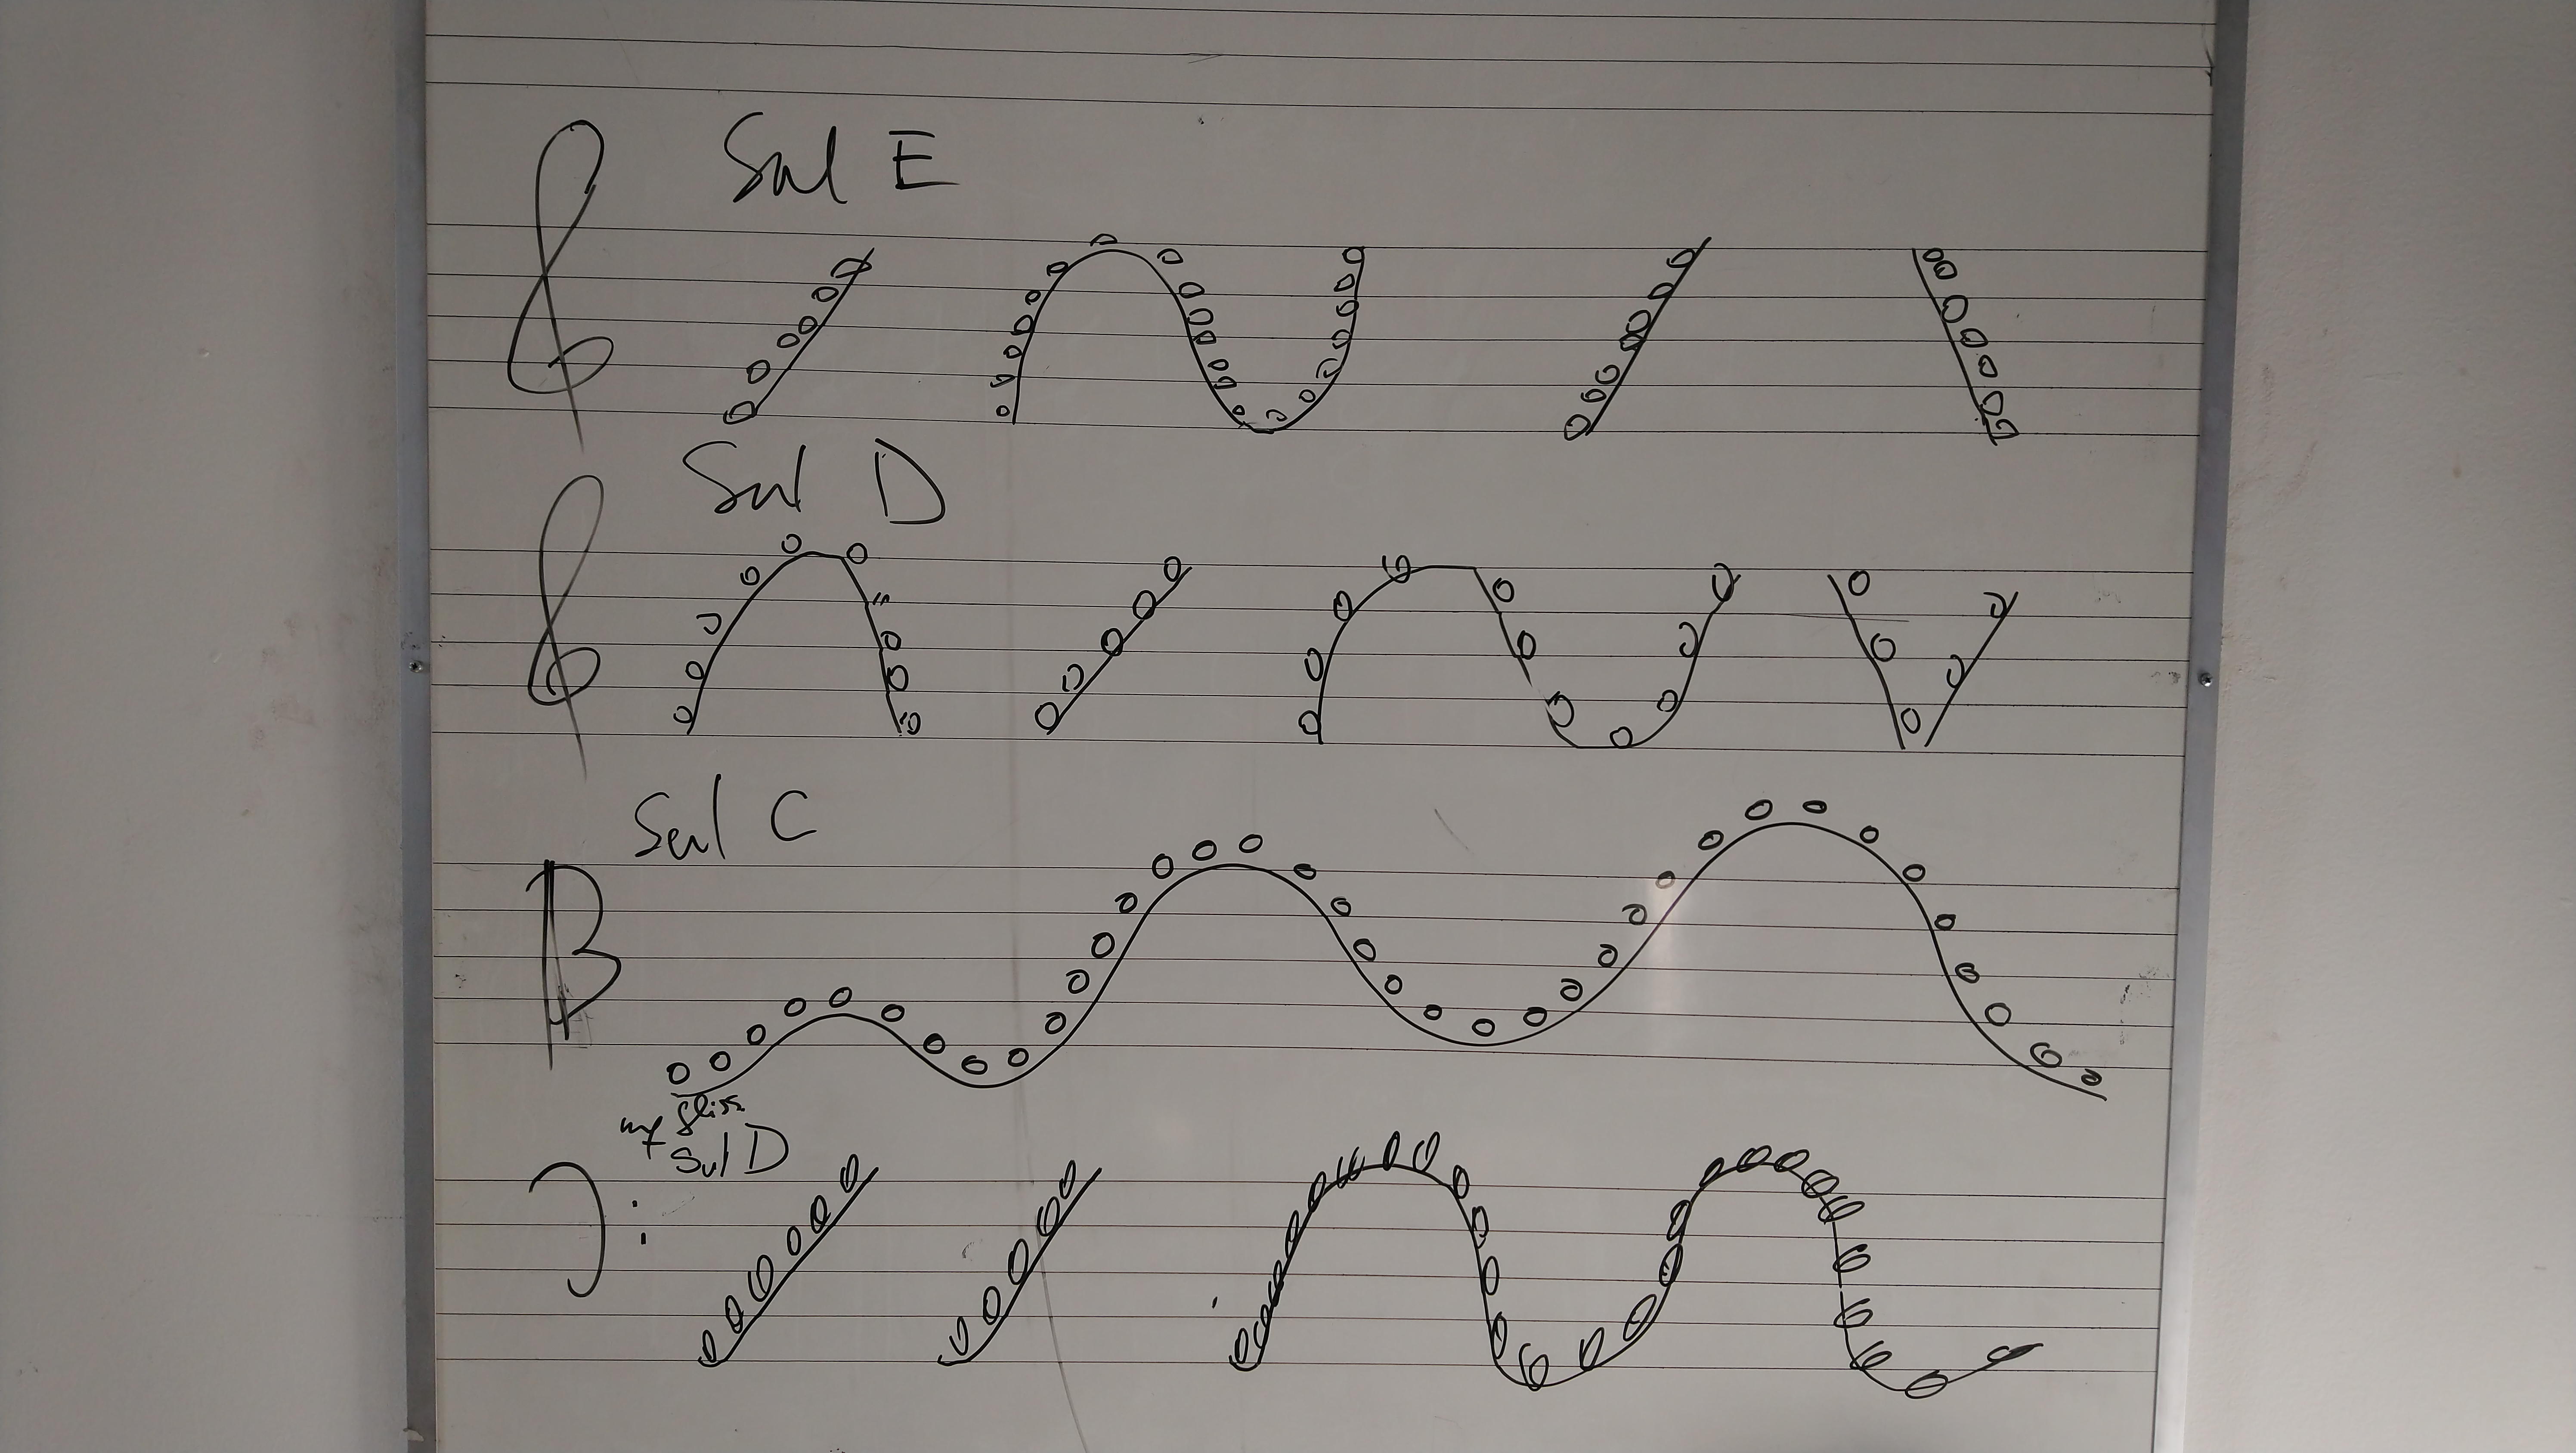 Sul E
Sul D
Sul C
mf gliss
Sul D